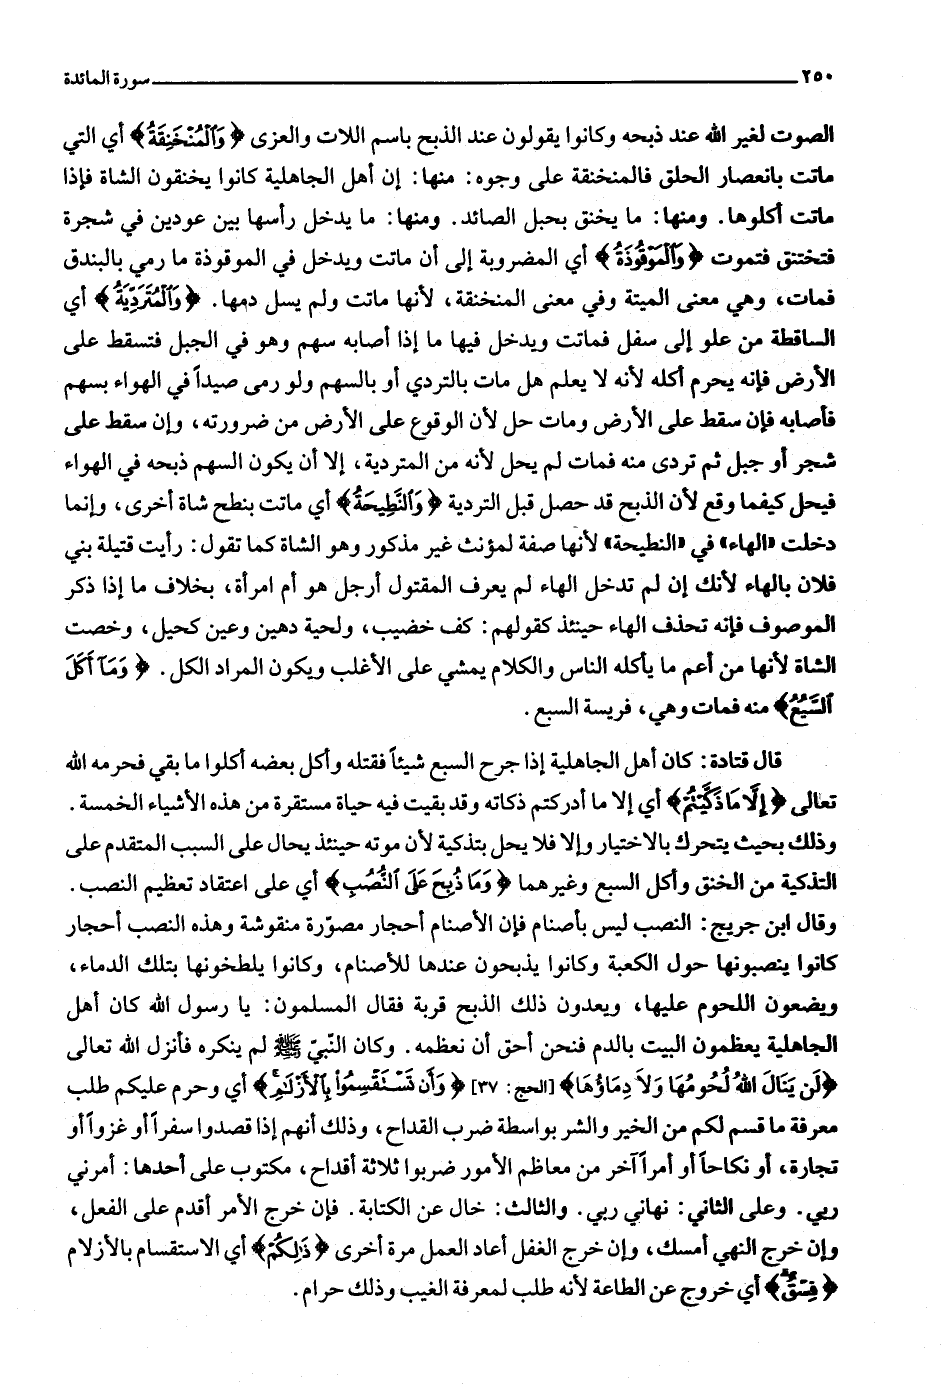 ٢٥٠ سورة المائدة
الصوت لغير الله عند ذبحه وكانوا يقولون عند الذبح باسم اللات والعزى ﴿وَٱلْمُنْخَنِقَةُ﴾ أي التي
ماتت بانعصار الحلق فالمنخنقة على وجوه: منها: إن أهل الجاهلية كانوا يخنقون الشاة فإذا
ماتت أكلوها. ومنها: ما يخنق بحبل الصائد. ومنها: ما يدخل رأسها بين عودين في شجرة
فتختنق فتموت ﴿وَٱلْمَوْقُوذَةُ﴾ أي المضروبة إلى أن ماتت ويدخل في الموقوذة ما رمي بالبندق
فمات، وهي معنى الميتة وفي معنى المنخنقة، لأنها ماتت ولم يسل دمها. ﴿وَٱلْمُتَرَدِّيَةُ﴾ أي
الساقطة من علو إلى سفل فماتت ويدخل فيها ما إذا أصابه سهم وهو في الجبل فتسقط على
الأرض فإنه يحرم أكله لأنه لا يعلم هل مات بالتردي أو بالسهم ولو رمى صيداً في الهواء بسهم
فأصابه فإن سقط على الأرض ومات حل لأن الوقوع على الأرض من ضرورته، وإن سقط على
شجر أو جبل ثم تردى منه فمات لم يحل لأنه من المتردية، إلا أن يكون السهم ذبحه في الهواء
فيحل كيفما وقع لأن الذبح قد حصل قبل التردية ﴿وَٱلنَّطِيحَةُ﴾ أي ماتت بنطح شاة أخرى، وإنما
دخلت «الهاء» في «النطيحة» لأنها صفة لمؤنث غير مذكور وهو الشاة كما تقول: رأيت قتيلة بني
فلان بالهاء لأنك إن لم تدخل الهاء لم يعرف المقتول أرجل هو أم امرأة، بخلاف ما إذا ذكر
الموصوف فإنه تحذف الهاء حينئذ كقولهم: كف خضيب، ولحية دهين وعين كحيل، وخصت
الشاة لأنها من أعم ما يأكله الناس والكلام يمشي على الأغلب ويكون المراد الكل. ﴿وَمَآ أَكَلَ
ٱلسَّبُعُ﴾ منه فمات وهي، فريسة السبع.
قال قتادة: كان أهل الجاهلية إذا جرح السبع شيئاً فقتله وأكل بعضه أكلوا ما بقي فحرمه الله
تعالى ﴿إِلَّا مَا ذَكَّيْتُمْ﴾ أي إلا ما أدركتم ذكاته وقد بقيت فيه حياة مستقرة من هذه الأشياء الخمسة.
وذلك بحيث يتحرك بالاختيار وإلا فلا يحل بتذكية لأن موته حينئذ يحال على السبب المتقدم على
التذكية من الخنق وأكل السبع وغيرهما ﴿وَمَا ذُبِحَ عَلَى ٱلنُّصُبِ﴾ أي على اعتقاد تعظيم النصب.
وقال ابن جريج: النصب ليس بأصنام فإن الأصنام أحجار مصوّرة منقوشة وهذه النصب أحجار
كانوا ينصبونها حول الكعبة وكانوا يذبحون عندها للأصنام، وكانوا يلطخونها بتلك الدماء،
ويضعون اللحوم عليها، ويعدون ذلك الذبح قربة فقال المسلمون: يا رسول الله كان أهل
الجاهلية يعظمون البيت بالدم فنحن أحق أن نعظمه. وكان النّبيّ ﷺ لم ينكره فأنزل الله تعالى
﴿لَن يَنَالَ اللهُ لُحُومُهَا وَلاَ دِمَاؤُهَا﴾ [الحج: ٣٧] ﴿وَأَن تَسْتَقْسِمُوا۟ بِٱلْأَزْلَٰمِ﴾ أي وحرم عليكم طلب
معرفة ما قسم لكم من الخير والشر بواسطة ضرب القداح، وذلك أنهم إذا قصدوا سفراً أو غزواً أو
تجارة، أو نكاحاً أو أمراً آخر من معاظم الأمور ضربوا ثلاثة أقداح، مكتوب على أحدها: أمرني
ربي. وعلى الثاني: نهاني ربي. والثالث: خال عن الكتابة. فإن خرج الأمر أقدم على الفعل،
وإن خرج النهي أمسك، وإن خرج الغفل أعاد العمل مرة أخرى ﴿ذَٰلِكُمْ﴾ أي الاستقسام بالأزلام
﴿فِسْقٌ﴾ أي خروج عن الطاعة لأنه طلب لمعرفة الغيب وذلك حرام.